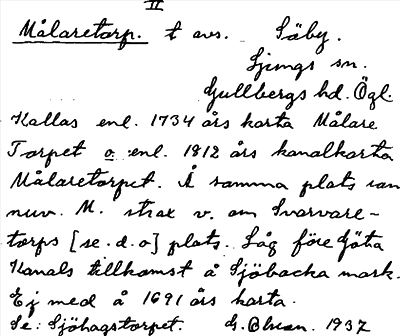 II
Målaretorp. t avs. Säby.
Ljungs sn.
Gullbergs hd. Ögl.
Kallas enl. 1734 års karta Målare
Torpet o. enl. 1812 års kanalkarta
Målaretorpet. Å samma plats som
nuv. M. strax v. om Svarvare-
torps [se. d. o] plats. Låg före Göta
Kanals tillkomst å Sjöbacka mark.
Ej med å 1691 års karta.
Se: Sjöhagstorpet. G. Olsson. 1937